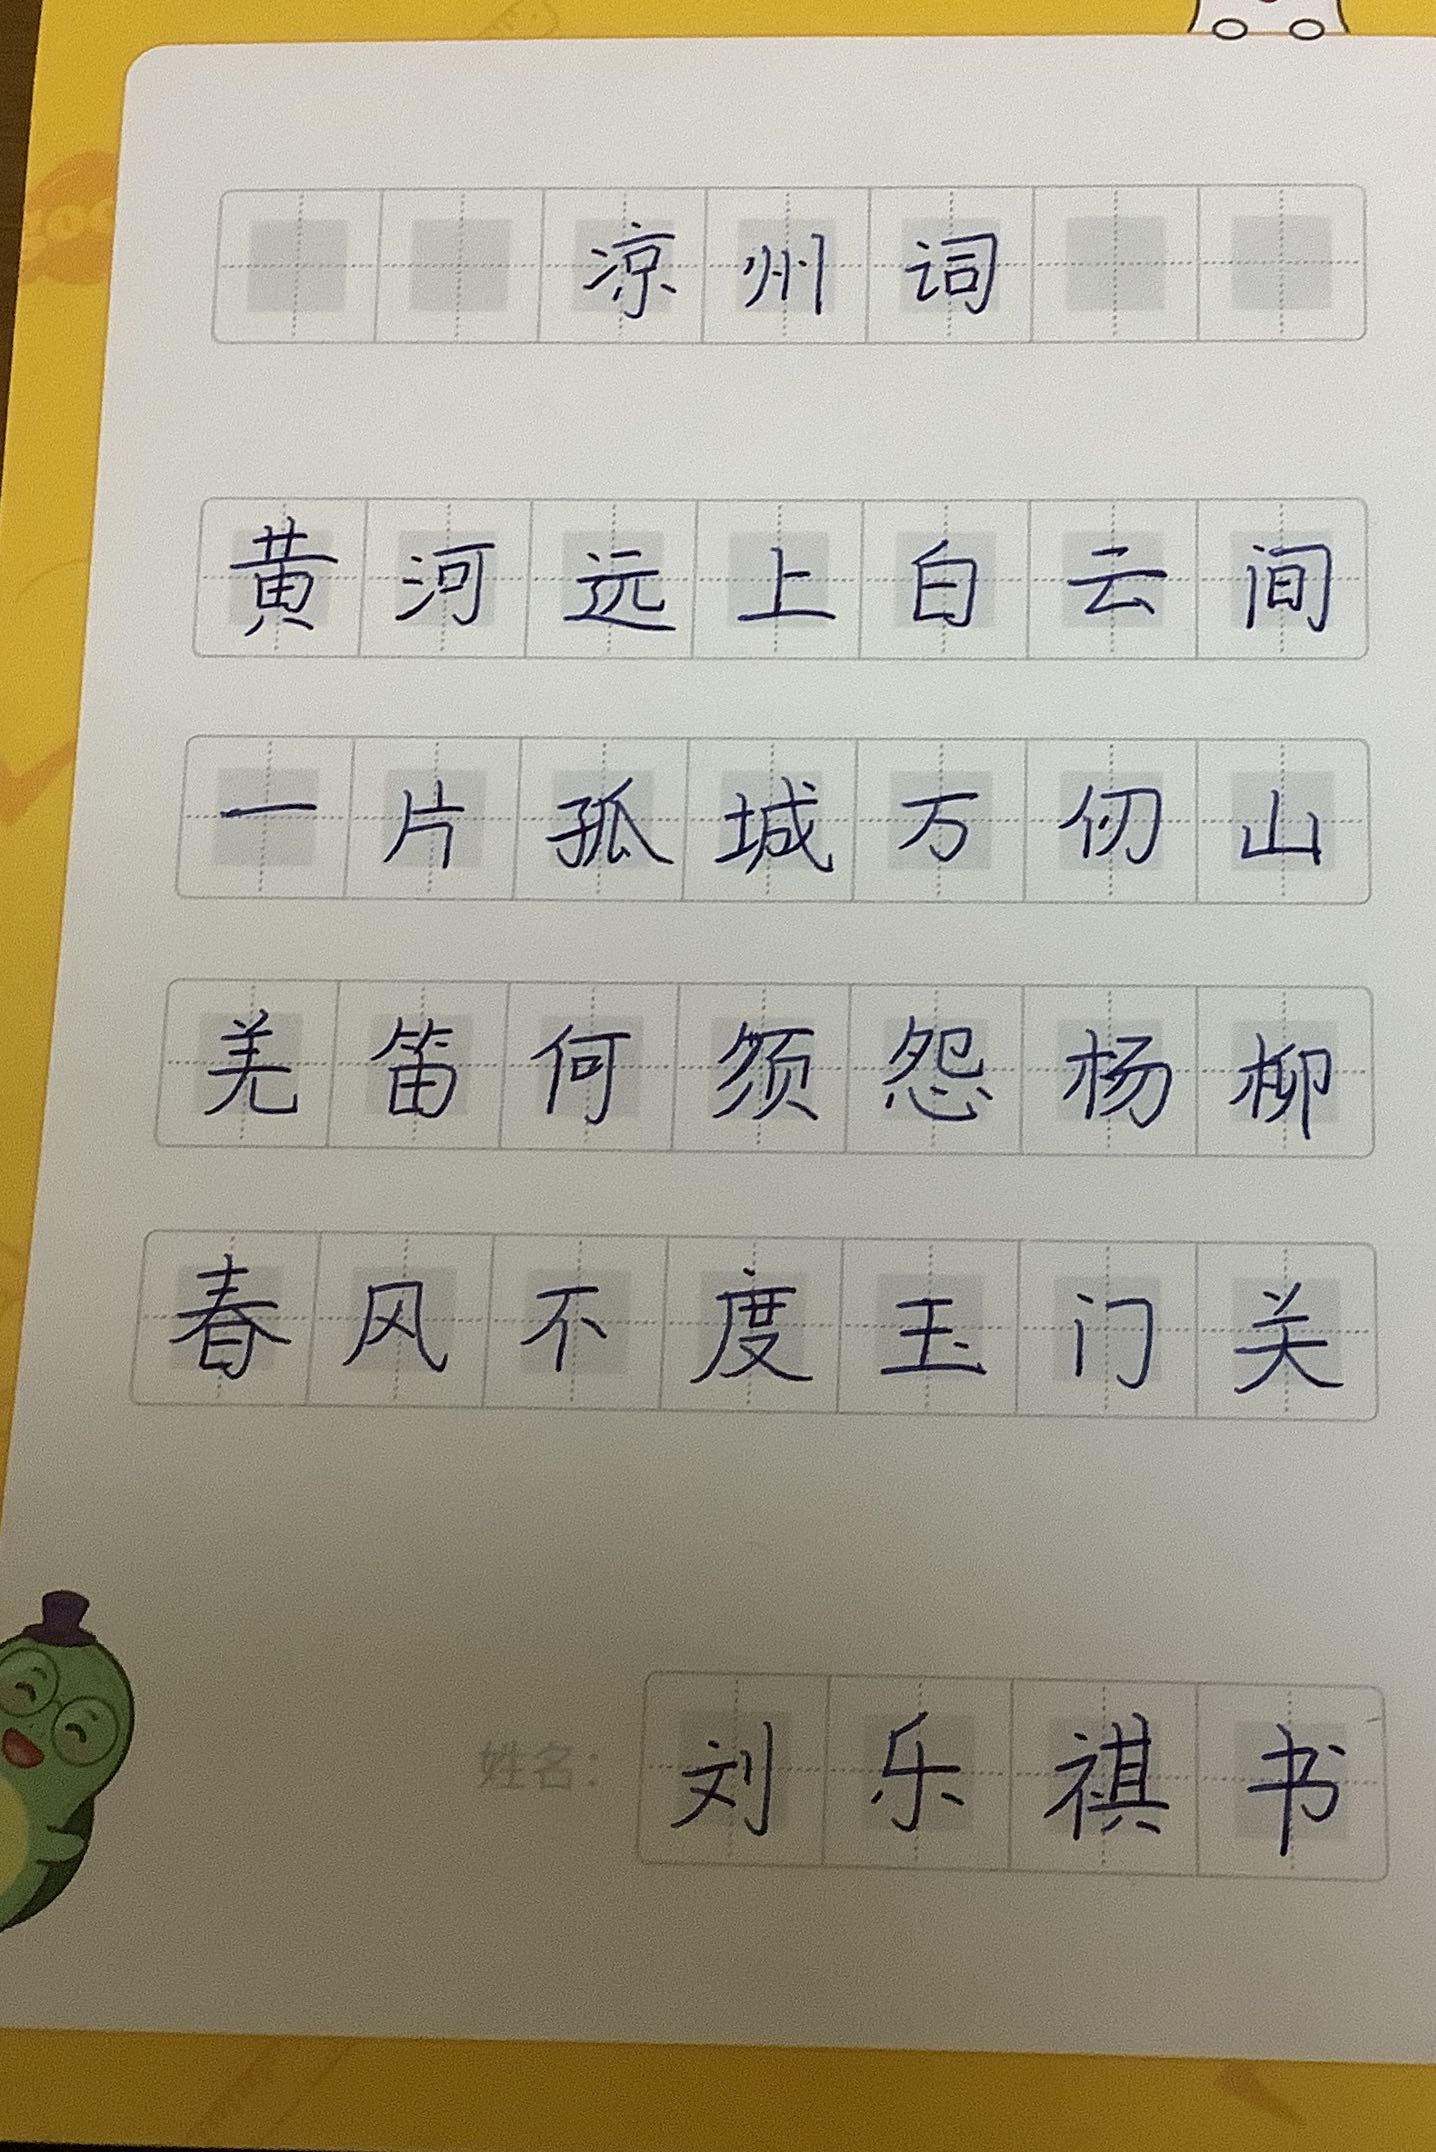 凉州词
黄河远上白云间
一片孤城万仞山
羌笛何须怨杨柳
春风不度玉门关
姓名：刘乐祺书